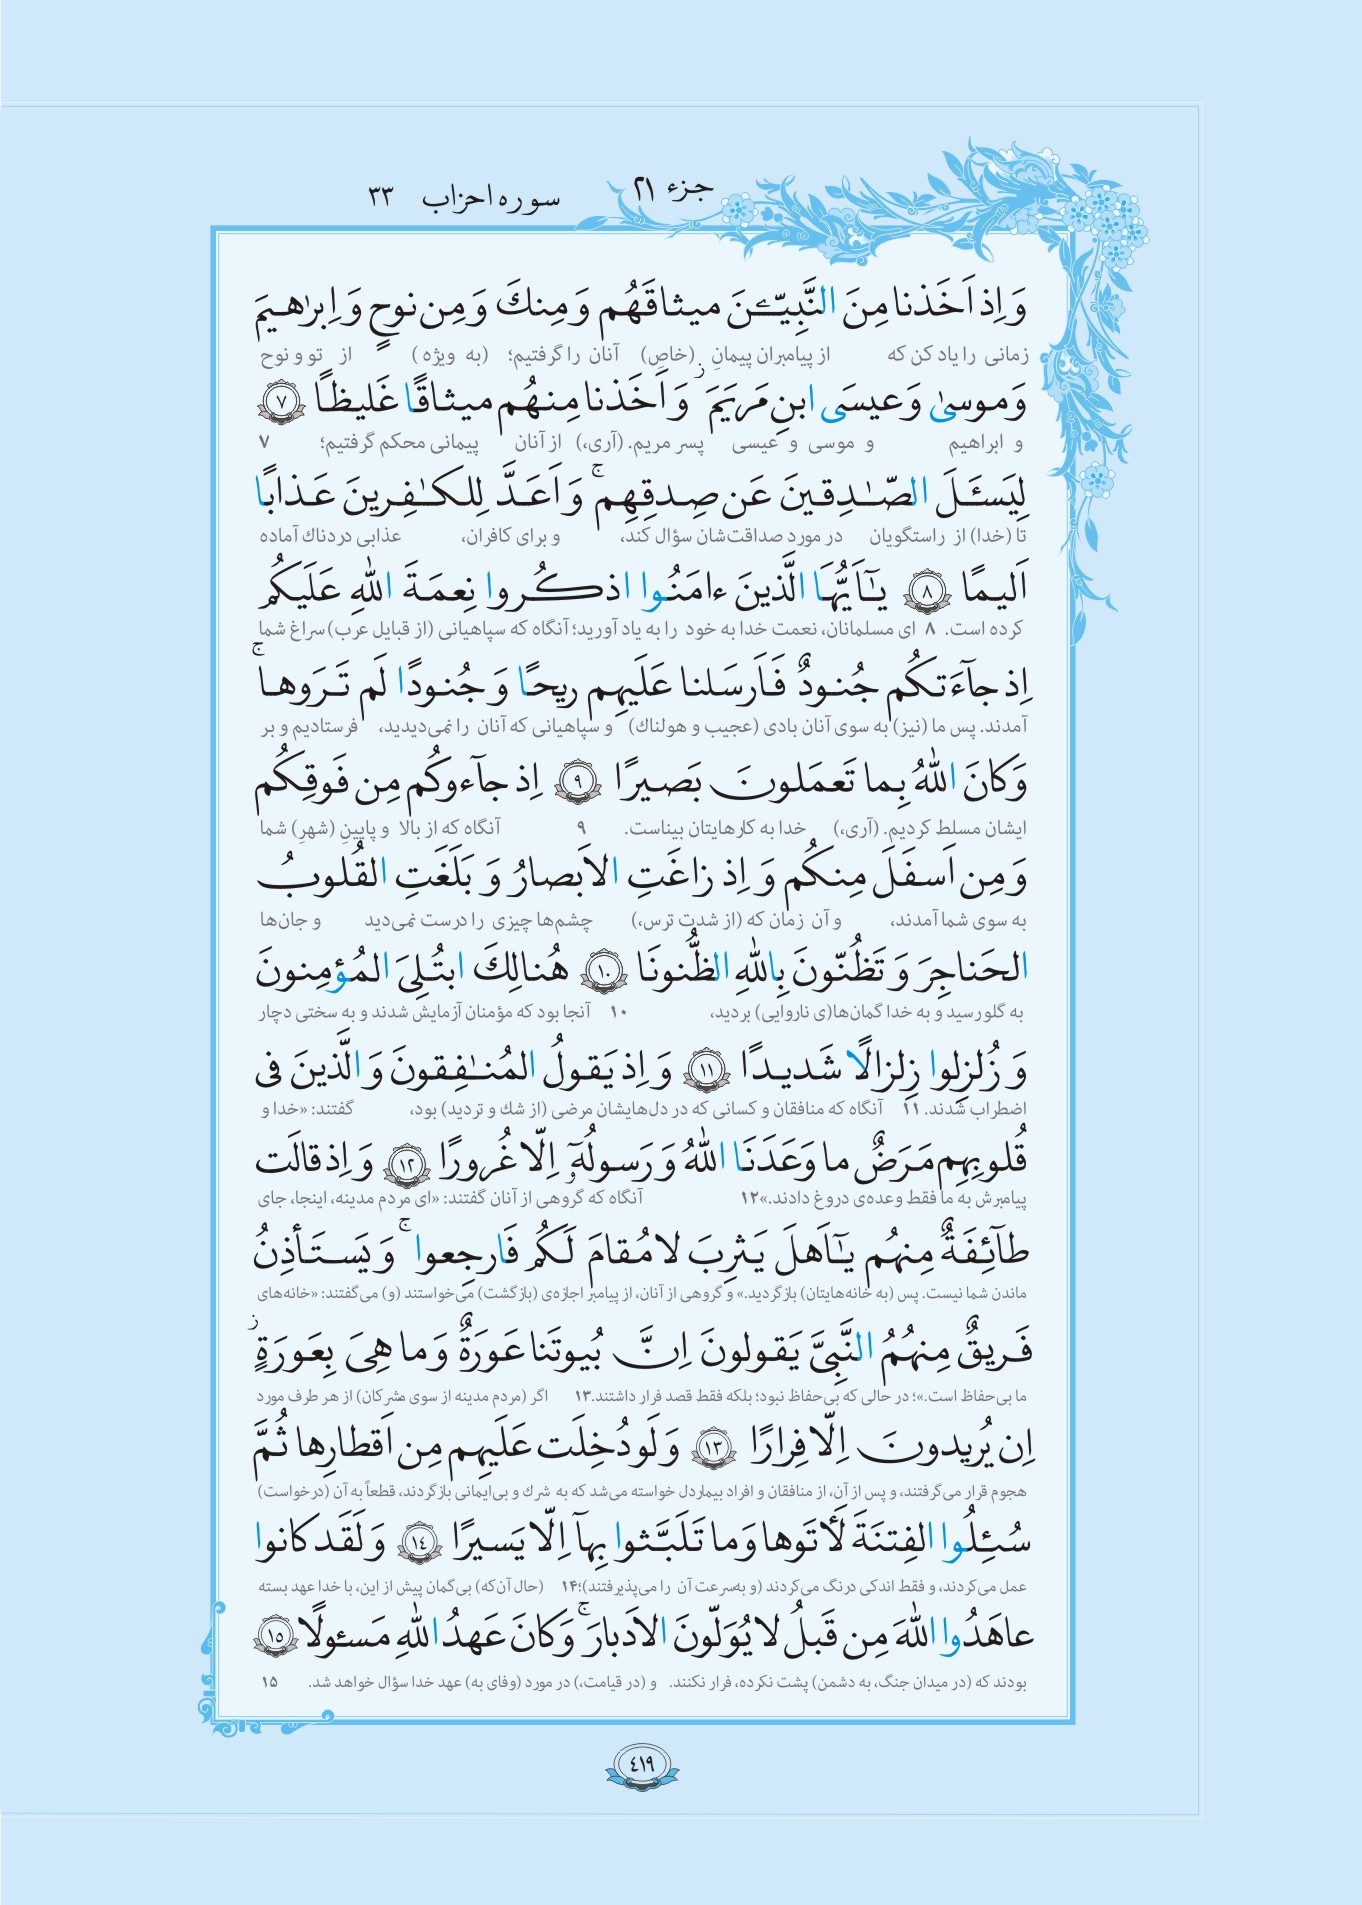 جزء ۲۱
سوره احزاب ۳۳
وَ اِذ اَخَذنا مِنَ النَّبِیّـۧنَ میثاقَهُم وَ مِنكَ وَ مِن نوحٍ وَ اِبرٰهیمَ
زمانی را یاد کن که از پیامبران پیمانِ (خاصِ) آنان را گرفتیم؛ (به ویژه) از تو و نوح
وَ موسیٰ وَ عیسَی ابنِ مَریَمَ ۖ وَ اَخَذنا مِنهُم میثاقًا غَلیظًا ﴿۷﴾
و ابراهیم و موسی و عیسی پسر مریم. (آری،) از آنان پیمانی محکم گرفتیم؛ ۷
لِیَسـَٔلَ الصّٰدِقینَ عَن صِدقِهِم ۚ وَ اَعَدَّ لِلكٰفِرینَ عَذابًا
تا (خدا) از راستگویان در مورد صداقت‌شان سؤال کند، و برای کافران، عذابی دردناك آماده
اَلیمًا ﴿۸﴾ یٰٓاَیُّهَا الَّذینَ ءامَنُوا اذكُروا نِعمَةَ اللّٰهِ عَلَیكُم
کرده است. ۸ ای مسلمانان، نعمت خدا به خود را به یاد آورید؛ آنگاه که سپاهیانی (از قبایل عرب) سراغ شما
اِذ جآءَتكُم جُنودٌ فَاَرسَلنا عَلَیهِم ریحًا وَ جُنودًا لَم تَرَوها ۚ
آمدند. پس ما (نیز) به سوی آنان بادی (عجیب و هولناك) و سپاهیانی که آنان را نمی‌دیدید، فرستادیم و بر
وَ كانَ اللّٰهُ بِما تَعمَلونَ بَصیرًا ﴿۹﴾ اِذ جآءوكُم مِن فَوقِكُم
ایشان مسلط کردیم. (آری،) خدا به کارهایتان بیناست. ۹ آنگاه که از بالا و پایینِ (شهرِ) شما
وَ مِن اَسفَلَ مِنكُم وَ اِذ زاغَتِ الاَبصارُ وَ بَلَغَتِ القُلوبُ
به سوی شما آمدند، و آن زمان که (از شدت ترس،) چشم‌ها چیزی را درست نمی‌دید و جان‌ها
الحَناجِرَ وَ تَظُنّونَ بِاللّٰهِ الظُّنونَا ﴿۱۰﴾ هُنالِكَ ابتُلِیَ المُؤمِنونَ
به گلو رسید و به خدا گمان‌ها(ی ناروایی) بردید، ۱۰ آنجا بود که مؤمنان آزمایش شدند و به سختی دچار
وَ زُلزِلوا زِلزالًا شَدیدًا ﴿۱۱﴾ وَ اِذ یَقولُ المُنٰفِقونَ وَ الَّذینَ فی
اضطراب شدند. ۱۱ آنگاه که منافقان و کسانی که در دل‌هایشان مرضی (از شك و تردید) بود، گفتند: «خدا و
قُلوبِهِم مَرَضٌ ما وَعَدَنَا اللّٰهُ وَ رَسولُهٗٓ اِلّا غُرورًا ﴿۱۲﴾ وَ اِذ قالَت
پیامبرش به ما فقط وعده‌ی دروغ دادند.»۱۲ آنگاه که گروهی از آنان گفتند: «ای مردم مدینه، اینجا، جای
طآئِفَةٌ مِنهُم یٰٓاَهلَ یَثرِبَ لا مُقامَ لَكُم فَارجِعوا ۚ وَ یَستَأذِنُ
ماندن شما نیست. پس (به خانه‌هایتان) بازگردید.» و گروهی از آنان، از پیامبر اجازه‌ی (بازگشت) می‌خواستند (و) می‌گفتند: «خانه‌های
فَریقٌ مِنهُمُ النَّبِیَّ یَقولونَ اِنَّ بُیوتَنا عَورَةٌ وَ ما هِیَ بِعَورَةٍ ۖ
ما بی‌حفاظ است.»؛ در حالی که بی‌حفاظ نبود؛ بلکه فقط قصد فرار داشتند.۱۳ اگر (مردم مدینه از سوی مشرکان) از هر طرف مورد
اِن یُریدونَ اِلّا فِرارًا ﴿۱۳﴾ وَ لَو دُخِلَت عَلَیهِم مِن اَقطارِها ثُمَّ
هجوم قرار می‌گرفتند، و پس از آن، از منافقان و افراد بیماردل خواسته می‌شد که به شرك و بی‌ایمانی بازگردند، قطعاً به آن (درخواست)
سُئِلُوا الفِتنَةَ لَـَٔاتَوها وَ ما تَلَبَّثوا بِهآ اِلّا یَسیرًا ﴿۱۴﴾ وَ لَقَد كانوا
عمل می‌کردند، و فقط اندکی درنگ می‌کردند (و به‌سرعت آن را می‌پذیرفتند)؛۱۴ (حال آن‌که) بی‌گمان پیش از این، با خدا عهد بسته
عاهَدُوا اللّٰهَ مِن قَبلُ لا یُوَلّونَ الاَدبارَ ۚ وَ كانَ عَهدُ اللّٰهِ مَسئولًا ﴿۱۵﴾
بودند که (در میدان جنگ، به دشمن) پشت نکرده، فرار نکنند. و (در قیامت،) در مورد (وفای به) عهد خدا سؤال خواهد شد. ۱۵
٤١٩